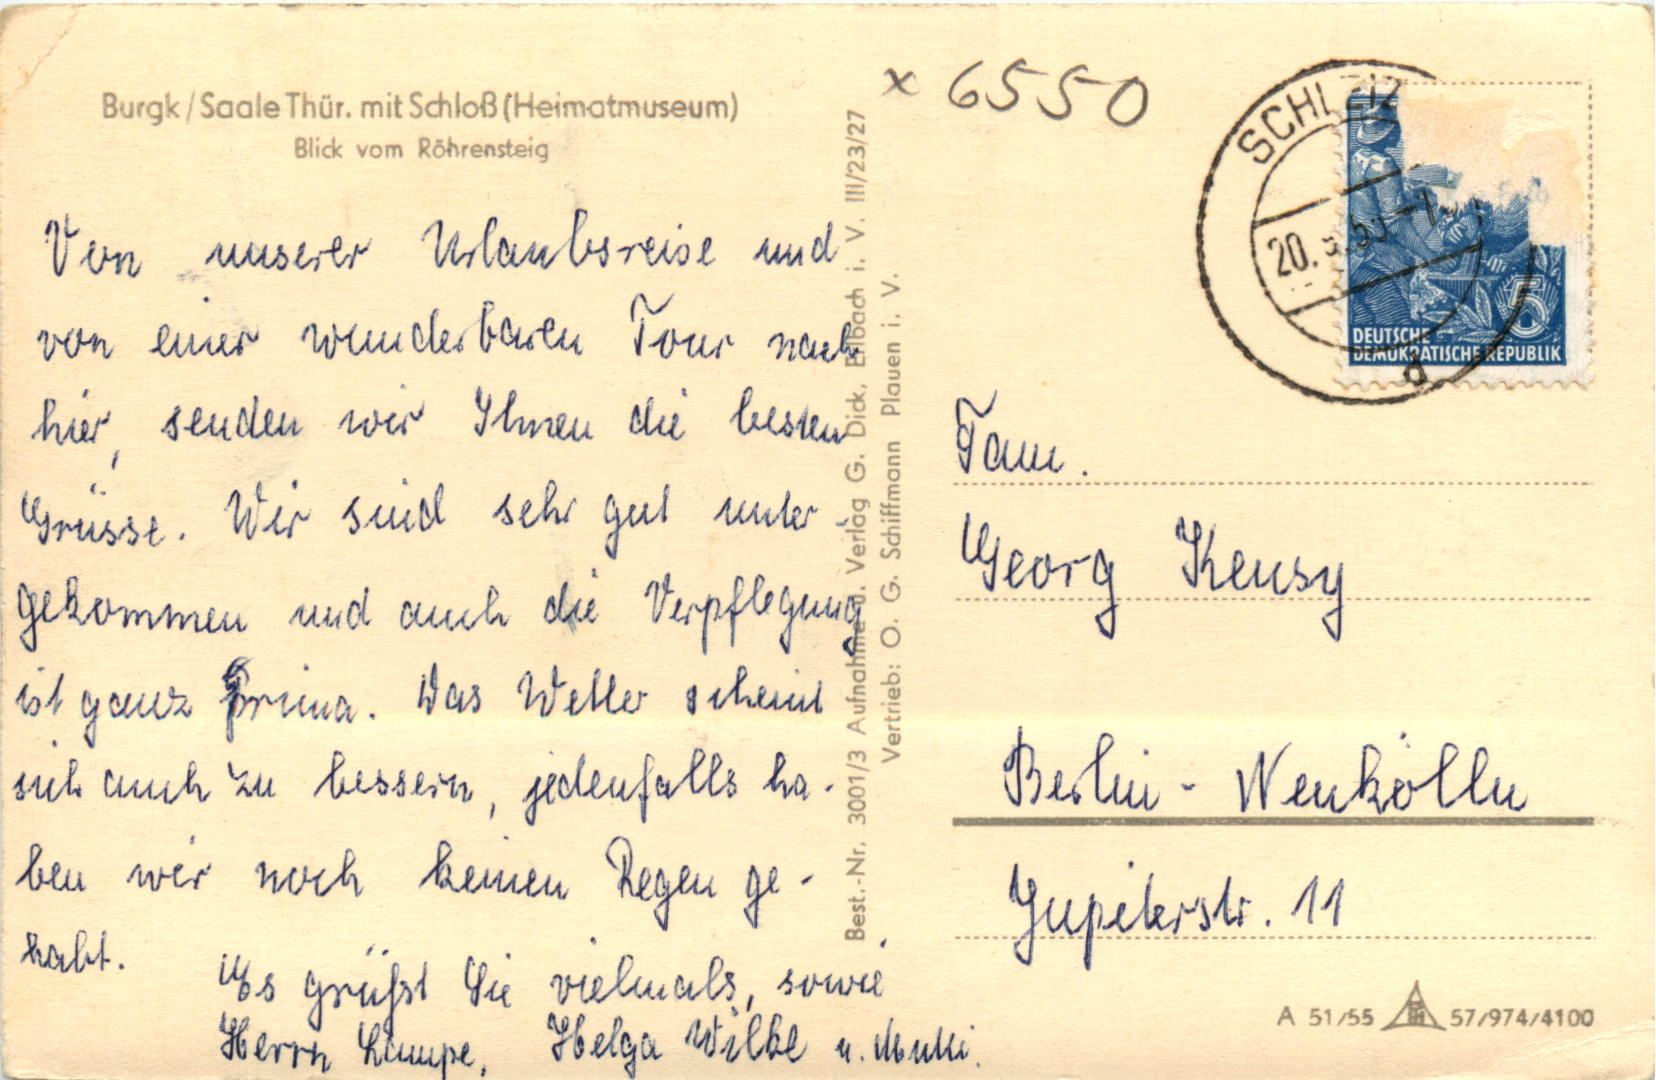 Burgk/Saale Thür. mit Schloß (Heimatmuseum)
Blick vom Röhrensteig
Von unserer Urlaubsreise und
von einer wunderbaren Tour nach
hier, senden wir Ihnen die besten
Grüsse. Wir sind sehr gut unter-
gekommen und auch die Verpflegung
ist ganz prima. Das Wetter scheint
sich auch zu bessern, jedenfalls ha-
ben wir noch keinen Regen ge-
habt.
Es grüßt Sie vielmals, sowie
Herrn Lampe, Helga Wilke u. Mutti.
Best.-Nr. 3001/3 Aufnahme u. Verlag G. Dick, Erlbach i. V. III/23/27
Vertrieb: O. G. Schiffmann Plauen i. V.
x 6550
SCHLEIZ
20.
d
5
DEUTSCHE
DEMOKRATISCHE REPUBLIK
Fam.
Georg Keusy
Berlin-Neukölln
Jupiterstr. 11
A 51/55 57/974/4100